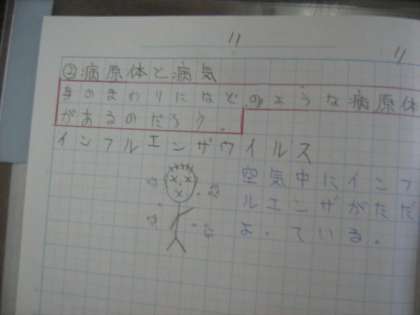 11
②病原体と病気
身のまわりにはどのような病原体
があるのだろう。
インフルエンザウイルス
空気中にインフ
ルエンザがただ
よっている。